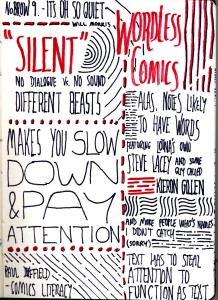 NOBROW 9 - ITS OH SO QUIET
WILL MORRIS
"SILENT"
NO DIALOGUE Vs. NO SOUND
DIFFERENT BEASTS
MAKES YOU SLOW
DOWN
& PAY
ATTENTION
PAUL DUFFIELD
- COMICS LITERACY
WORDLESS
COMICS
ALAS, NOTES LIKELY
TO HAVE WORDS
FEATURING LORNA'S OWN
STEVE LACEY AND SOME
GUY CALLED
KIERON GILLEN
AND MORE PEOPLE WHO'S NAMES
I DIDN'T CATCH
(SORRY)
TEXT HAS TO STEAL
ATTENTION TO
FUNCTION AS TEXT